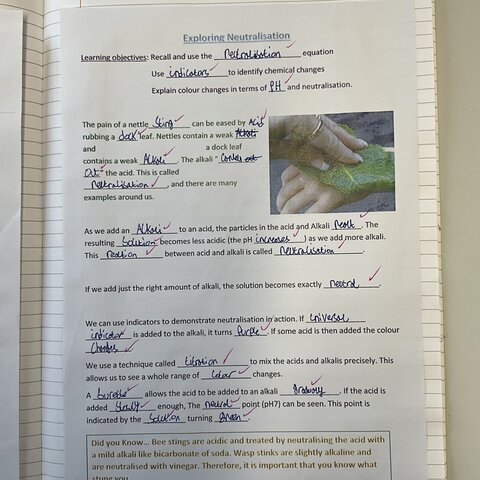 Exploring Neutralisation
Learning objectives: Recall and use the neutralisation equation
Use indicators to identify chemical changes
Explain colour changes in terms of PH and neutralisation.
The pain of a nettle sting can be eased by Acid
rubbing a dock leaf. Nettles contain a weak Alkali
and a dock leaf
contains a weak Alkali. The alkali "Cancles out
Out" the acid. This is called
neutralisation, and there are many
examples around us.
As we add an Alkali to an acid, the particles in the acid and Alkali React. The
resulting Solution becomes less acidic (the pH increases) as we add more alkali.
This reaction between acid and alkali is called neutralisation.
If we add just the right amount of alkali, the solution becomes exactly neutral.
We can use indicators to demonstrate neutralisation in action. If universal
indicator is added to the alkali, it turns Purple. If some acid is then added the colour
Changes.
We use a technique called titration to mix the acids and alkalis precisely. This
allows us to see a whole range of colour changes.
A burette allows the acid to be added to an alkali. If the acid is
added Slowly enough, The neutral point (pH7) can be seen. This point is
indicated by the Solution turning green.
Did you Know... Bee stings are acidic and treated by neutralising the acid with
a mild alkali like bicarbonate of soda. Wasp stinks are slightly alkaline and
are neutralised with vinegar. Therefore, it is important that you know what
stung you